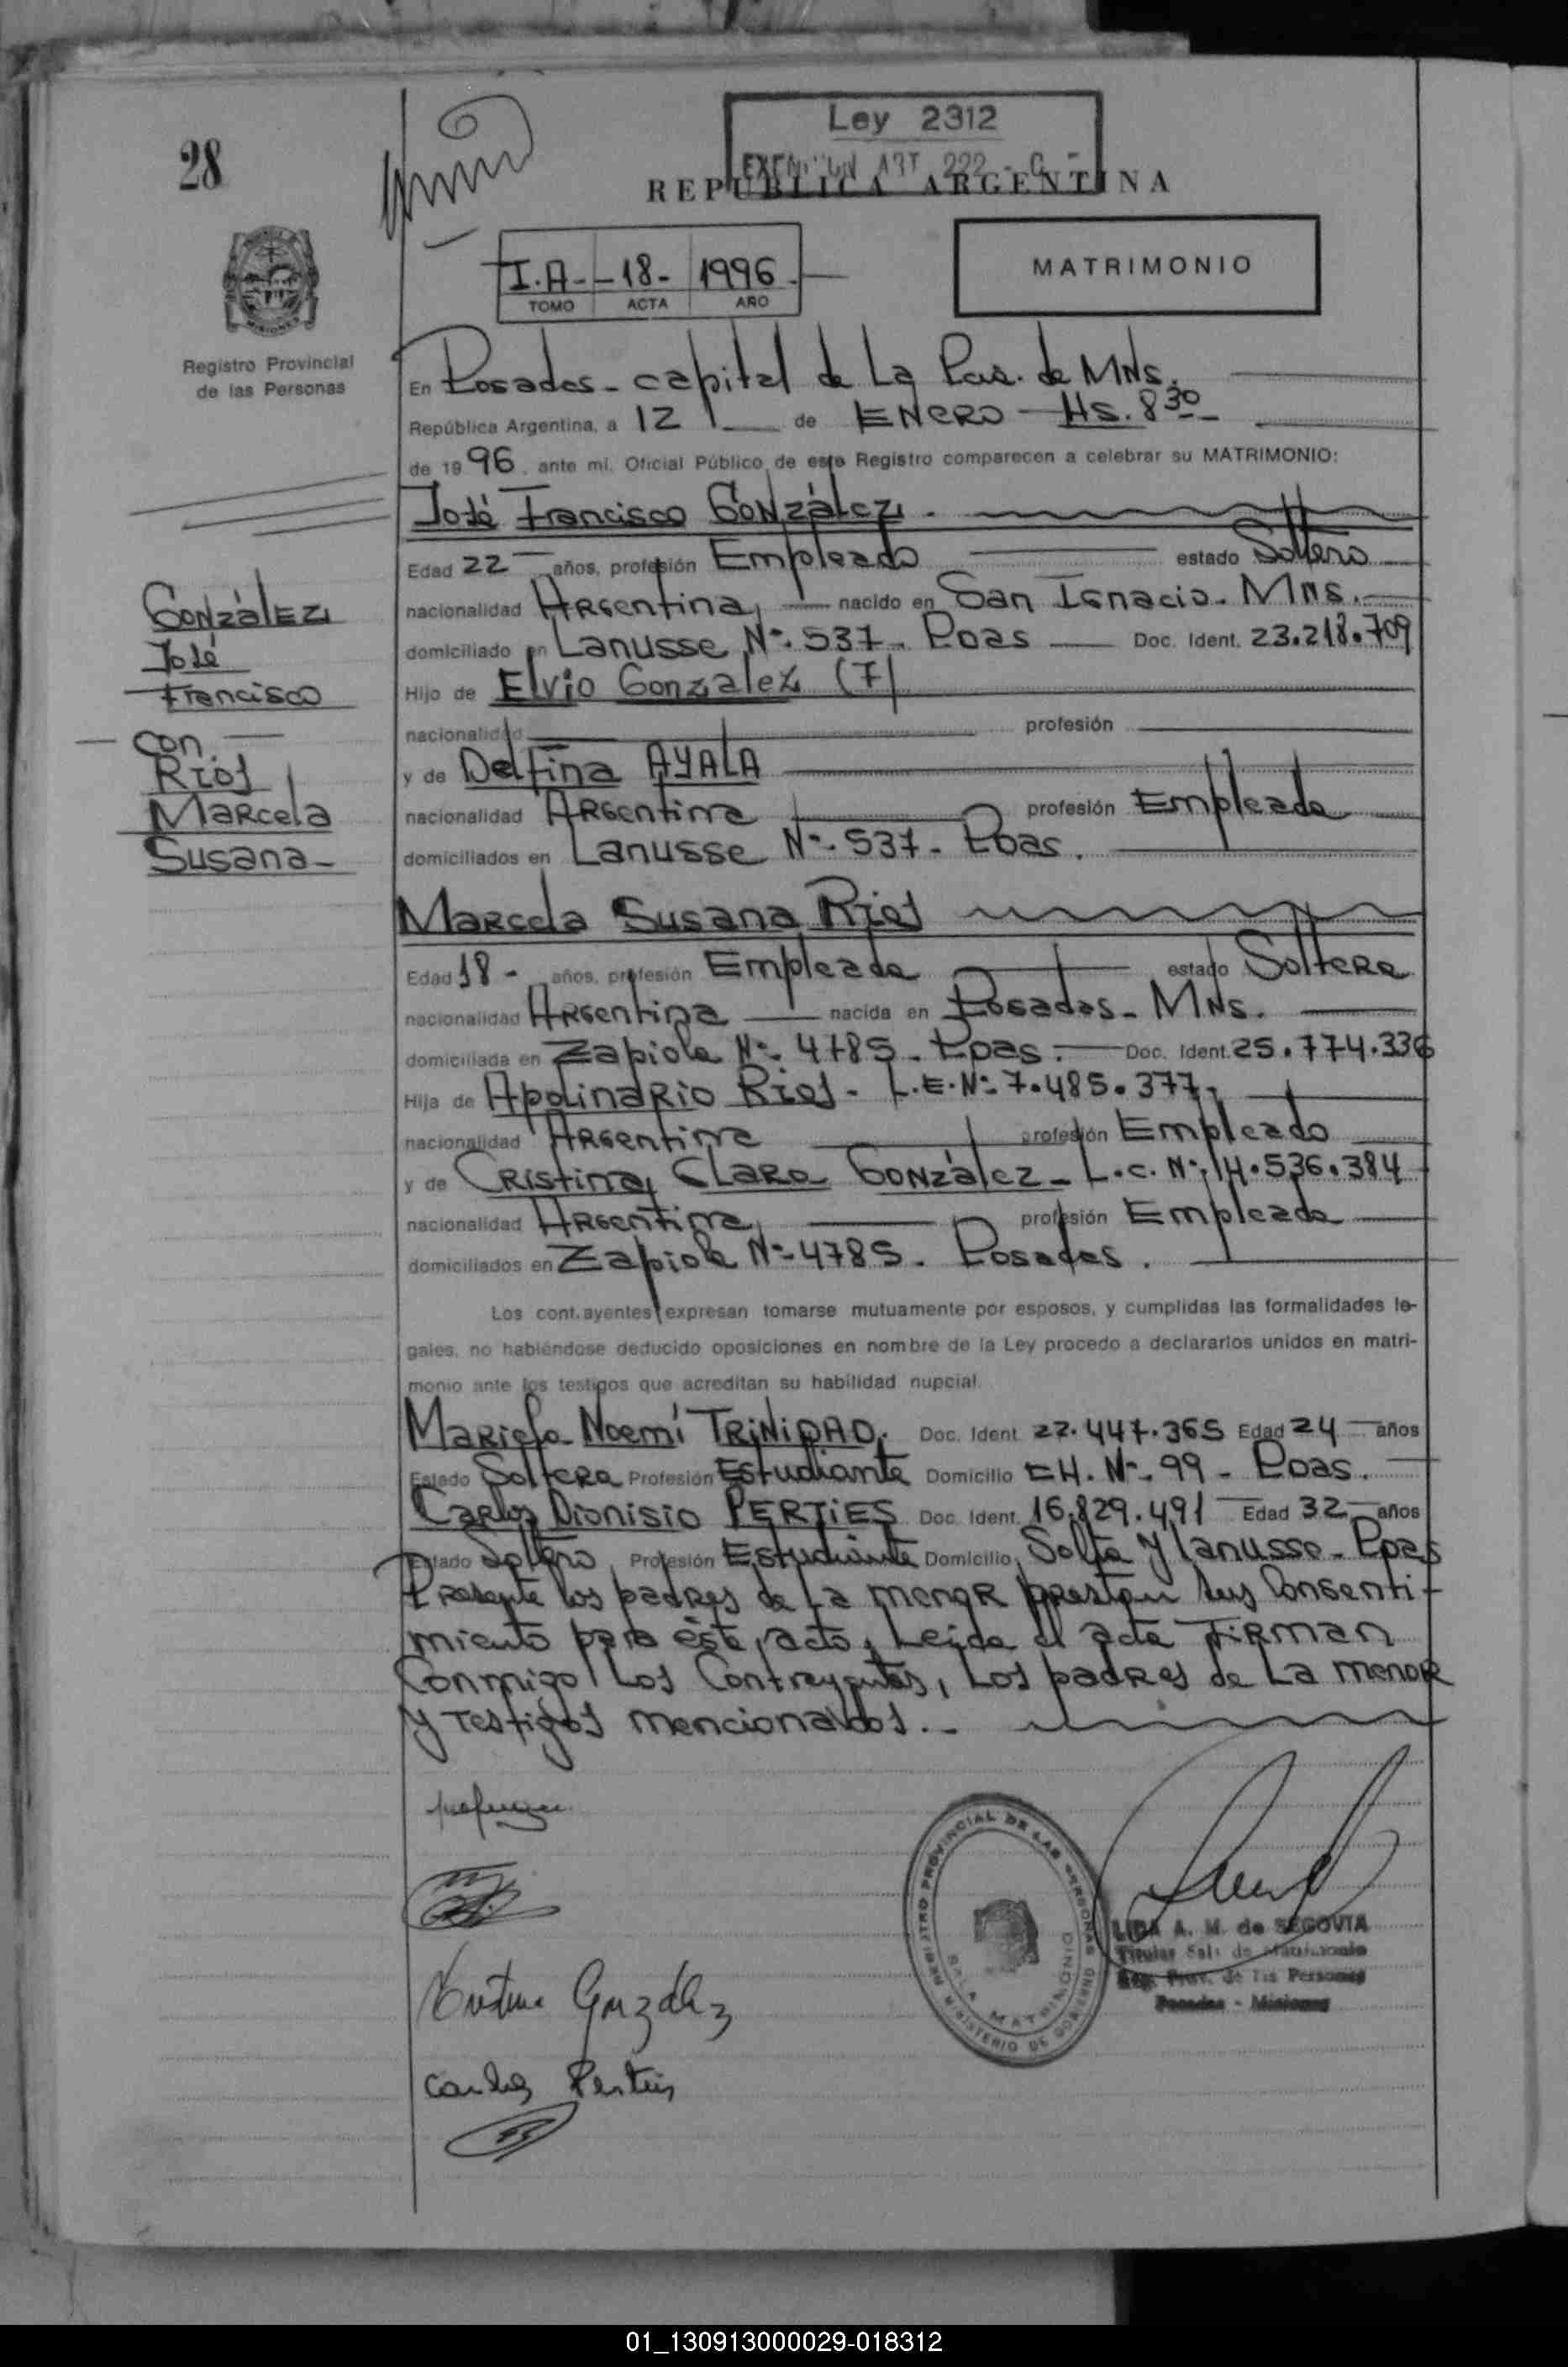 28
Ley 2312
EXENCION ART 222 - C -
REPUBLICA ARGENTINA
I.A. - 18 - 1996.
TOMO ACTA AÑO
MATRIMONIO
Registro Provincial
de las Personas
En Posadas - capital de La Pcia. de MNS.
República Argentina, a 12 de ENERO - HS. 8 30
de 1996, ante mi, Oficial Público de este Registro comparecen a celebrar su MATRIMONIO:
José Francisco GONZÁLEZ.
Edad 22 años, profesión Empleado estado Soltero
nacionalidad ARGentina, nacido en San IGnacio - MNS.
domiciliado en Lanusse Nº 537 - Poas Doc. Ident. 23.218.709
Hijo de Elvio Gonzalez (F)
nacionalidad profesión
y de Delfina AYALA
nacionalidad ARGentina profesión Empleada
domiciliados en Lanusse Nº 537 - Poas.
GONZÁLEZ
José
Francisco
con
RIOS
MARCELA
Susana
MARCELA Susana RIOS
Edad 18 - años, profesión Empleada estado SolteRa
nacionalidad ARGentina nacida en Posadas - MNS.
domiciliada en Zapiola Nº 4785 - Poas. Doc. Ident. 25.774.336
Hija de ApolinaRio RIOS - L.E. Nº 7.485.377,
nacionalidad ARGentina profesión Empleado
y de CRistina CLARA GONZÁLEZ - L.C. Nº 14.536.384
nacionalidad ARGentina, profesión Empleada
domiciliados en Zapiola Nº 4785. Posadas.
Los contrayentes expresan tomarse mutuamente por esposos, y cumplidas las formalidades le-
gales, no habiéndose deducido oposiciones en nombre de la Ley procedo a declararlos unidos en matri-
monio ante los testigos que acreditan su habilidad nupcial.
MARIELA Noemí TRINIDAD. Doc. Ident. 22.447.365 Edad 24 años
Estado SolteRa Profesión Estudiante Domicilio CH. Nº 99 - Poas.
Carlos Dionisio PERTIES Doc. Ident. 16.829.491 Edad 32 años
Estado Soltero Profesión Estudiante Domicilio Salta y Lanusse - Poas
Presente los padRes de La menoR prestan sus Consenti-
miento para éste acto, Leída el acta FiRman
Conmigo Los Contrayentes, Los padRes de La menoR
y Testigos mencionados. -
Cristina González
Carlos Perties
REGISTRO PROVINCIAL DE LAS PERSONAS
MINISTERIO DE GOBIERNO
SALA MATRIMONIO
LIDA A. M. de SEGOVIA
Titular Sala de Matrimonio
Reg. Prov. de las Personas
Posadas - Misiones
01_130913000029-018312